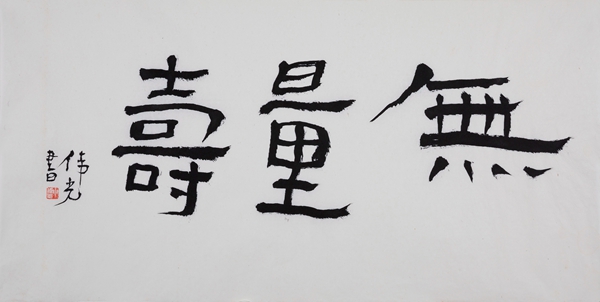 無量壽
伟光
書